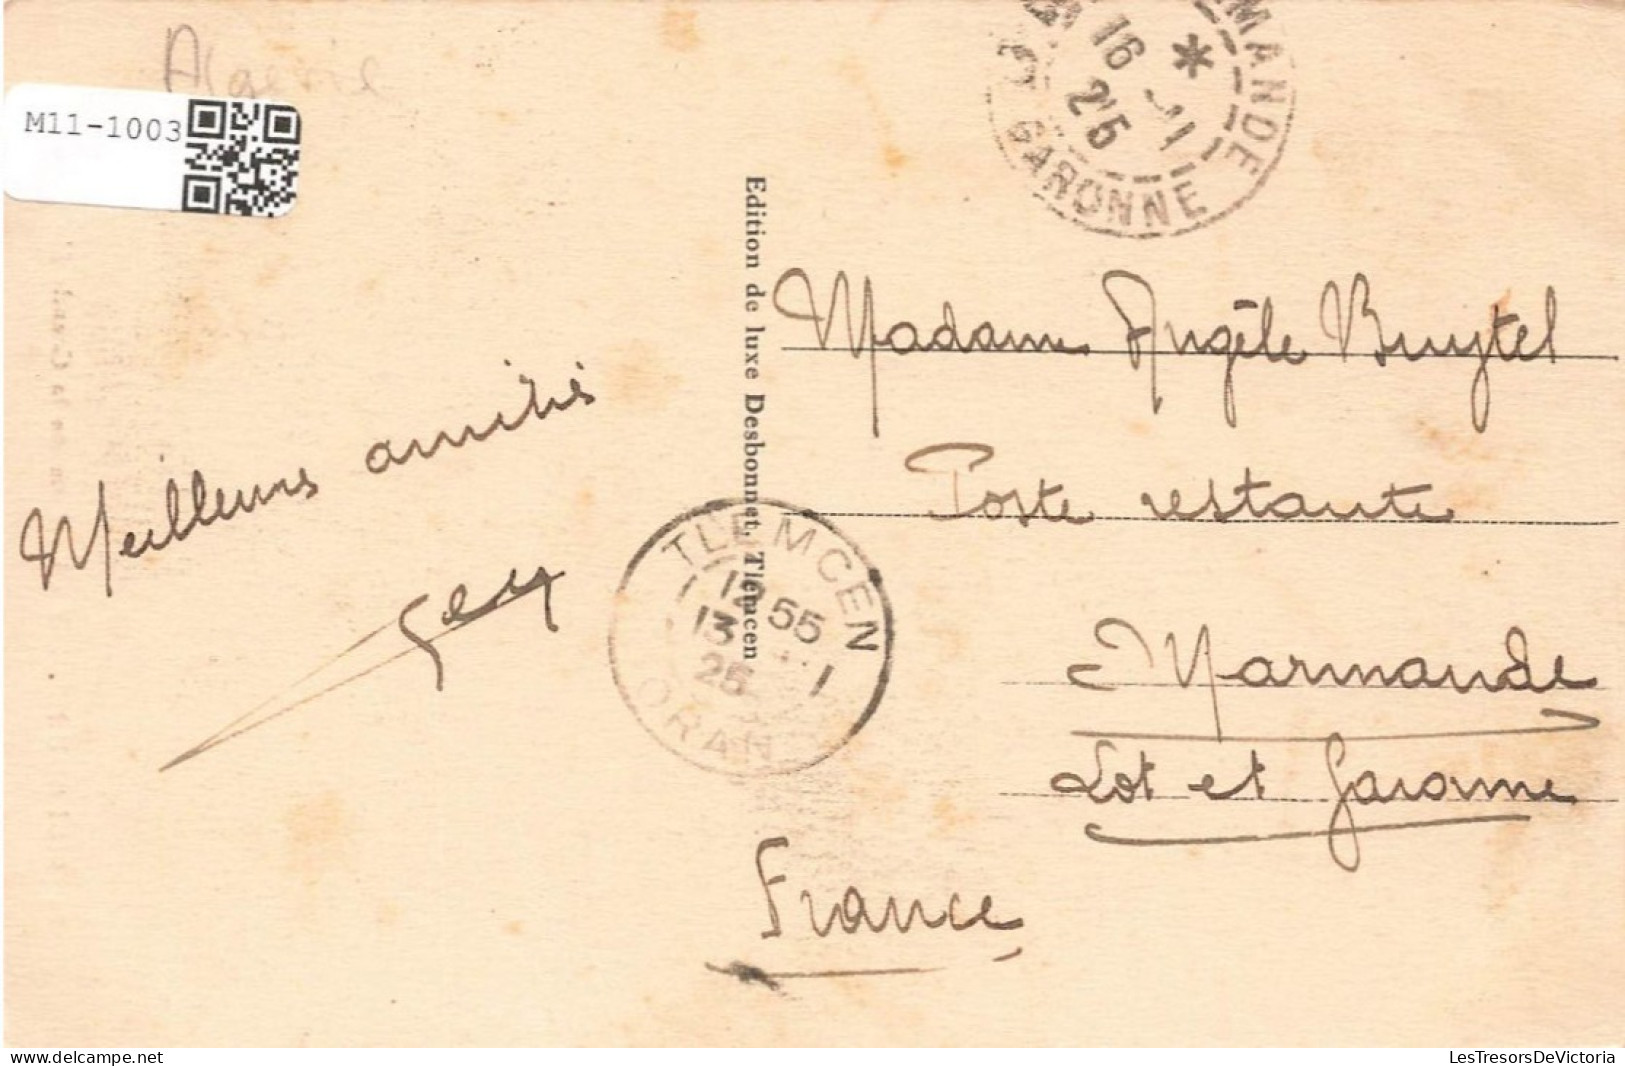 Algérie
M11-1003
MANDE
16 -1
25
GARONNE
Edition de luxe Desbonnet, Tlemcen
Madame Angèle Bruytel
Poste restante
Marmande
Lot et Garonne
France
Meilleures amitiés
Gey
TLEMCEN
55
13 -1
25
ORAN
www.delcampe.net
LesTresorsDeVictoria